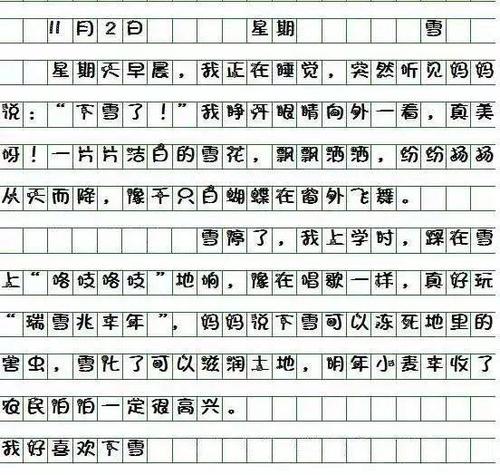 11月2日 星期 雪
星期天早晨，我正在睡觉，突然听见妈妈
说：“下雪了！”我睁开眼睛向外一看，真美
呀！一片片洁白的雪花，飘飘洒洒，纷纷扬扬
从天而降，像千只白蝴蝶在窗外飞舞。
雪停了，我上学时，踩在雪
上“咯吱咯吱”地响，像在唱歌一样，真好玩
“瑞雪兆丰年”，妈妈说下雪可以冻死地里的
害虫，雪化了可以滋润土地，明年小麦丰收了
农民伯伯一定很高兴。
我好喜欢下雪